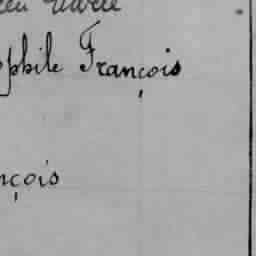 ophile François
nçois